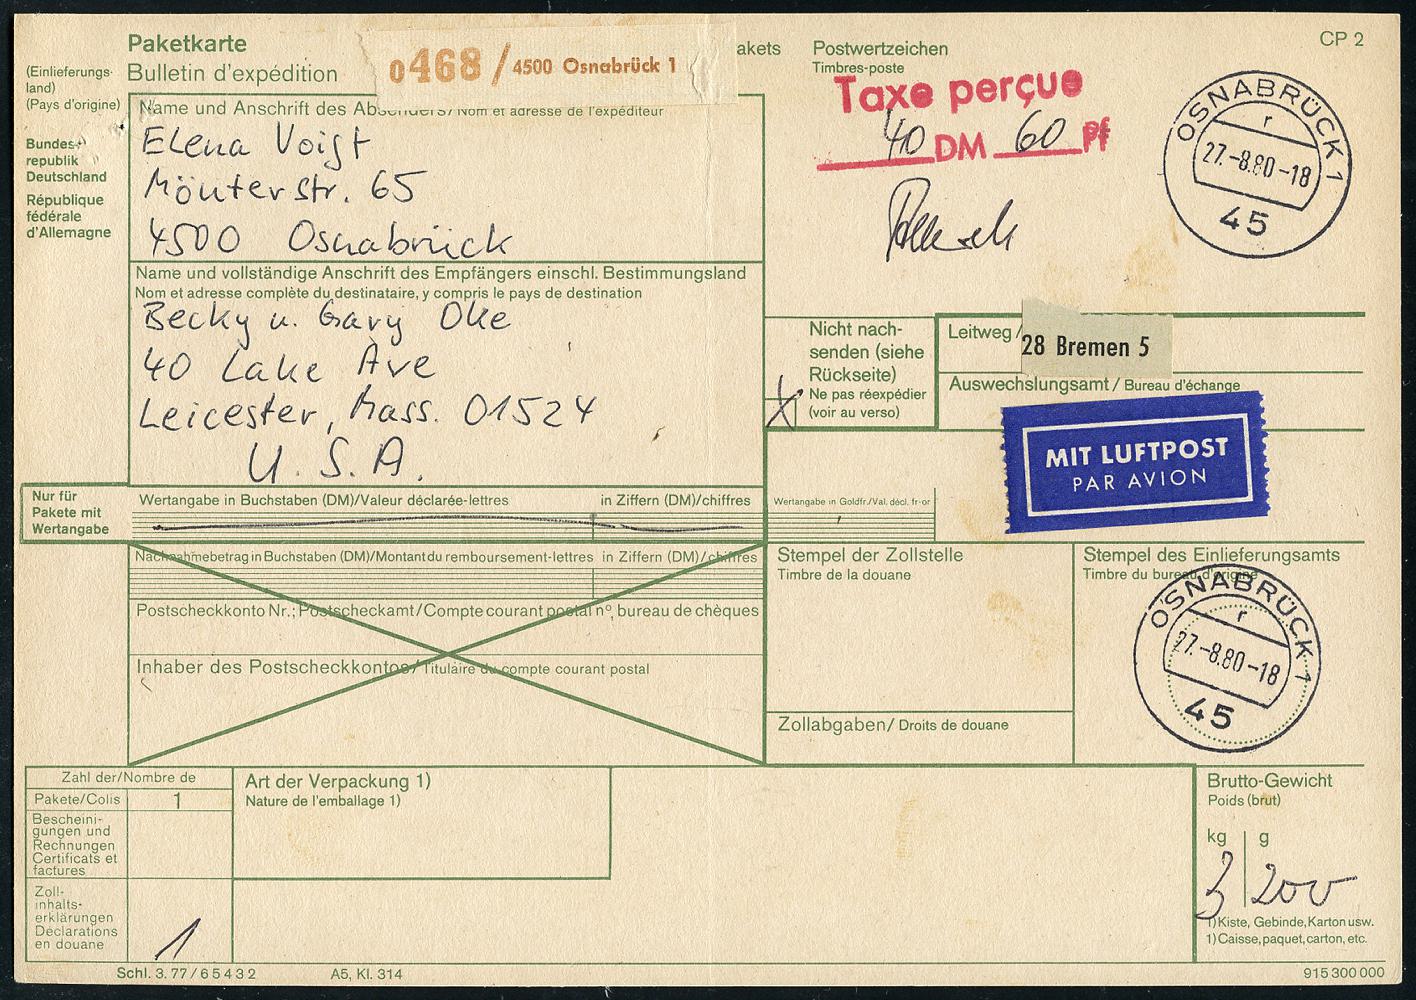 Paketkarte
Bulletin d'expédition
0468 / 4500 Osnabrück 1
akets
Postwertzeichen
Timbres-poste
CP 2
(Einlieferungs-
land)
(Pays d'origine)
Bundes-
republik
Deutschland
République
fédérale
d'Allemagne
Name und Anschrift des Absenders/Nom et adresse de l'expéditeur
Elena Voigt
Mönterstr. 65
4500 Osnabrück
Taxe perçue
40 DM 60 Pf
OSNABRÜCK 1
r
27.-8.80-18
45
Name und vollständige Anschrift des Empfängers einschl. Bestimmungsland
Nom et adresse complète du destinataire, y compris le pays de destination
Becky u. Gary Oke
40 Lake Ave
Leicester, Mass. 01524
U.S.A.
Nicht nach-
senden (siehe
Rückseite)
Ne pas réexpédier
(voir au verso)
X
Leitweg/
28 Bremen 5
Auswechslungsamt/Bureau d'échange
MIT LUFTPOST
PAR AVION
Nur für
Pakete mit
Wertangabe
Wertangabe in Buchstaben (DM)/Valeur déclarée-lettres
in Ziffern (DM)/chiffres
Wertangabe in Goldfr./Val. décl. fr-or
Nachnahmebetrag in Buchstaben (DM)/Montant du remboursement-lettres
in Ziffern (DM)/chiffres
Postscheckkonto Nr.; Postscheckamt/Compte courant postal n°, bureau de chèques
Inhaber des Postscheckkontos/Titulaire du compte courant postal
Stempel der Zollstelle
Timbre de la douane
Zollabgaben/Droits de douane
Stempel des Einlieferungsamts
Timbre du bureau d'origine
OSNABRÜCK 1
r
27.-8.80-18
45
Zahl der/Nombre de
Pakete/Colis
1
Bescheini-
gungen und
Rechnungen
Certificats et
factures
Zoll-
inhalts-
erklärungen
Déclarations
en douane
1
Art der Verpackung 1)
Nature de l'emballage 1)
Brutto-Gewicht
Poids (brut)
kg
g
3
200
1) Kiste, Gebinde, Karton usw.
1) Caisse, paquet, carton, etc.
Schl. 3.77/65432
A5, Kl. 314
915 300 000